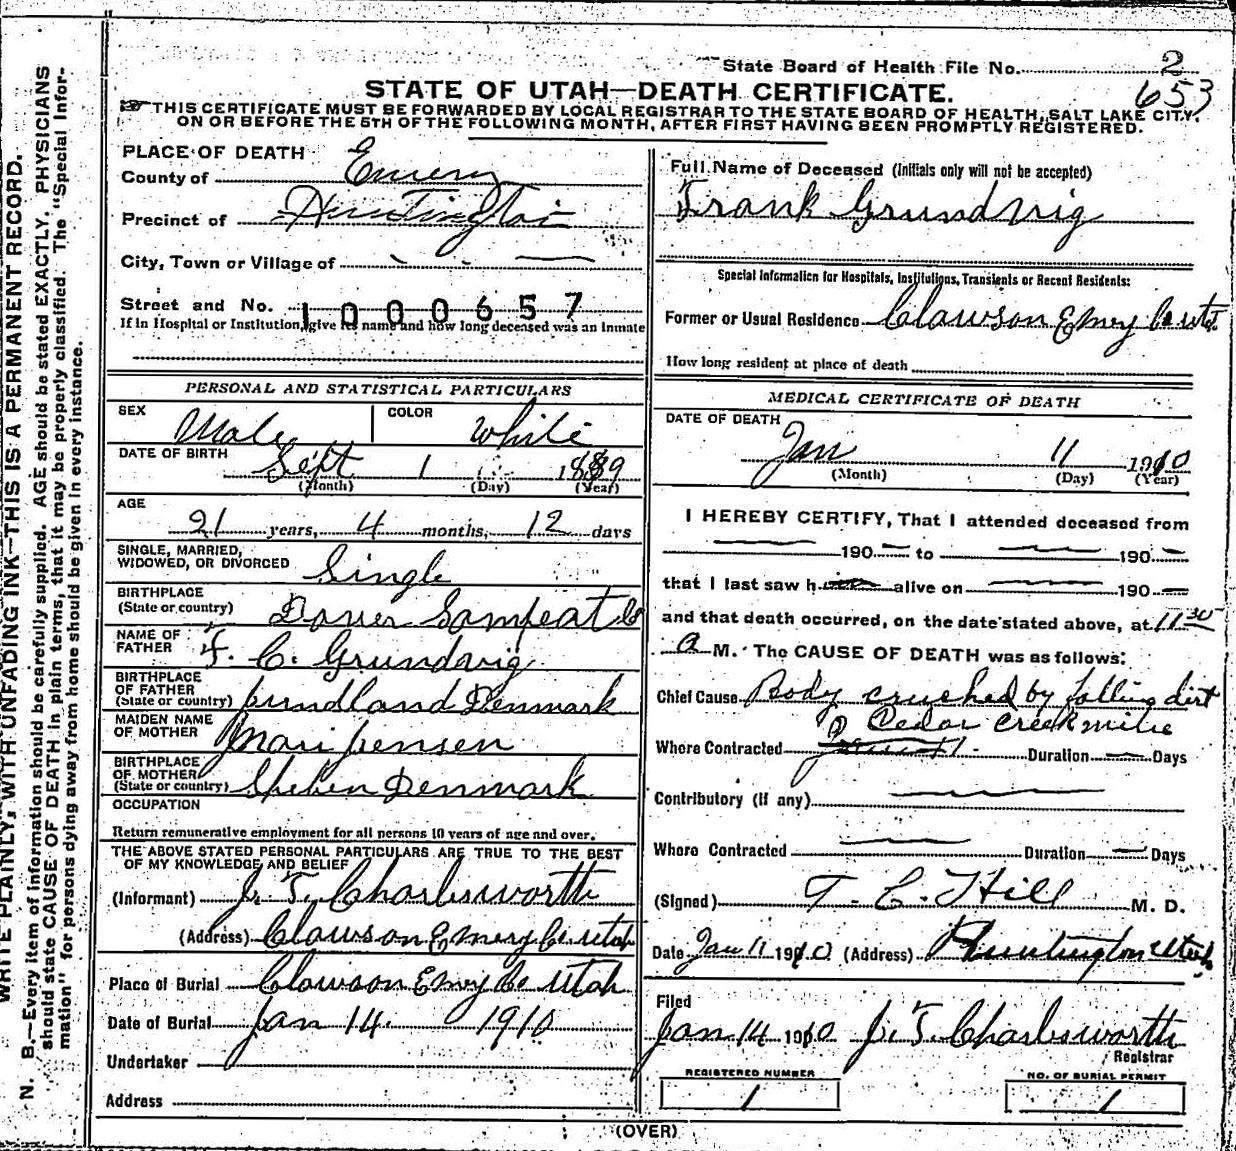 State Board of Health File No. 2
653
STATE OF UTAH—DEATH CERTIFICATE.
THIS CERTIFICATE MUST BE FORWARDED BY LOCAL REGISTRAR TO THE STATE BOARD OF HEALTH, SALT LAKE CITY,
ON OR BEFORE THE 5TH OF THE FOLLOWING MONTH, AFTER FIRST HAVING BEEN PROMPTLY REGISTERED.
WRITE PLAINLY, WITH UNFADING INK—THIS IS A PERMANENT RECORD.
N. B.—Every item of information should be carefully supplied. AGE should be stated EXACTLY. PHYSICIANS
should state CAUSE OF DEATH in plain terms, that it may be properly classified. The "Special Infor-
mation" for persons dying away from home should be given in every instance.
PLACE OF DEATH
County of Emery
Precinct of Huntington
City, Town or Village of
Street and No. 1000657
If in Hospital or Institution, give its name and how long deceased was an inmate
PERSONAL AND STATISTICAL PARTICULARS
SEX Male COLOR White
DATE OF BIRTH Sept 1 1889
(Month) (Day) (Year)
AGE
21 years, 4 months, 12 days
SINGLE, MARRIED,
WIDOWED, OR DIVORCED Single
BIRTHPLACE
(State or country) Dover Sampeat Co
NAME OF
FATHER F. C. Grundvig
BIRTHPLACE
OF FATHER
(State or country) Jundland Denmark
MAIDEN NAME
OF MOTHER Mari Jensen
BIRTHPLACE
OF MOTHER
(State or country) Denmark
OCCUPATION
Return remunerative employment for all persons 10 years of age and over.
THE ABOVE STATED PERSONAL PARTICULARS ARE TRUE TO THE BEST
OF MY KNOWLEDGE AND BELIEF
(Informant) J. T. Charlesworth
(Address) Clawson Emery Co Utah
Place of Burial Clawson Emery Co Utah
Date of Burial Jan 14. 1910
Undertaker
Address
Full Name of Deceased (Initials only will not be accepted)
Frank Grundvig
Special Information for Hospitals, Institutions, Transients or Recent Residents:
Former or Usual Residence Clawson Emery Co Ut
How long resident at place of death
MEDICAL CERTIFICATE OF DEATH
DATE OF DEATH
Jan 11 1910
(Month) (Day) (Year)
I HEREBY CERTIFY, That I attended deceased from
— 190— to — 190—
that I last saw h alive on — 190—
and that death occurred, on the date stated above, at 11 30
a M. The CAUSE OF DEATH was as follows:
Chief Cause Body crushed by falling dirt
Cedar Creek mine
Where Contracted Duration — Days
Contributory (If any) —
Where Contracted — Duration — Days
(Signed) T. C. Hill M. D.
Date Jan 11 1910 (Address) Huntington Utah
Filed
Jan 14 1910 J. T. Charlesworth
Registrar
REGISTERED NUMBER
1
NO. OF BURIAL PERMIT
1
(OVER)